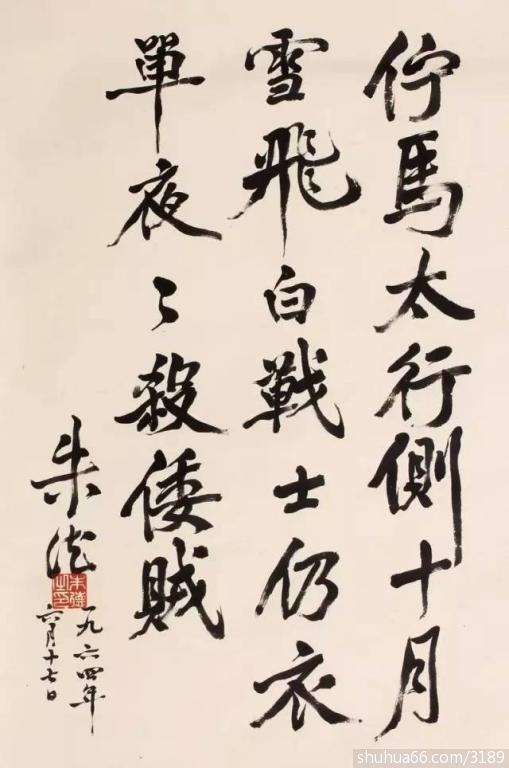 佇馬太行側十月
雪飛白戰士仍衣
單夜〻殺倭賊
朱德
一九六四年
六月十七日
朱德之印
shuhua66.com/3189